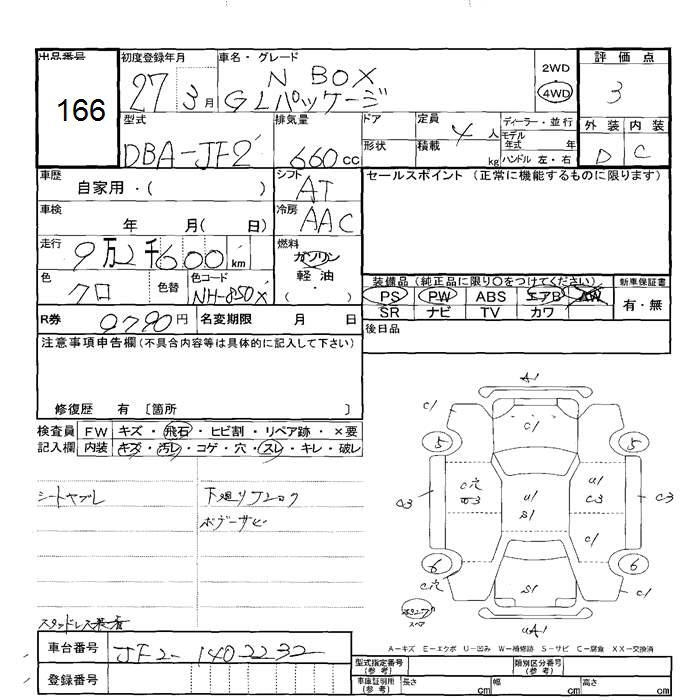 出品番号 初度登録年月 車名・グレード 評価点
166
27 3月
N BOX
GLパッケージ
2WD
4WD
3
型式 排気量 ドア 定員 4人 ディーラー・並行
モデル年式 年
形状 積載 kg ハンドル 左・右
外装 内装
D C
DBA-JF2 660cc
車歴 自家用・( ) シフト AT
セールスポイント (正常に機能するものに限ります)
車検 年 月( 日) 冷房 AAC
走行 9万2千600km 燃料 ガソリン
軽油
( )
色 クロ 色替 色コード NH-850X
装備品 (純正品に限り○をつけてください) 新車保証書
PS PW ABS エアB AW 有・無
SR ナビ TV カワ
R券 9790円 名変期限 月 日
後日品
注意事項申告欄 (不具合内容等は具体的に記入して下さい)
修復歴 有 〔箇所 〕
検査員 FW キズ・飛石・ヒビ割・リペア跡・×要
記入欄 内装 キズ・汚レ・コゲ・穴・スレ・キレ・破レ
シートヤブレ 下廻リ
ボデーサビ
スタッドレス
A1
C1 C1
5 5
C穴 U1 U1
C3 C3
S1
C1
6 6
C穴 S1 C1
スペア
UA1
A-キズ E-エクボ U-凹み W-補修跡 S-サビ C-腐食 XX-交換済
車台番号 JF2-1402232
登録番号
型式指定番号(参考) 類別区分番号(参考)
車庫証明用(参考) 長さ cm 幅 cm 高さ cm